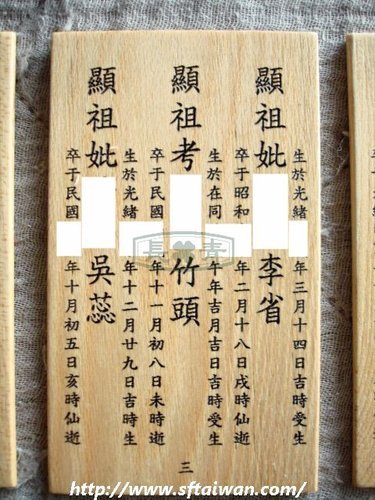 生於光緒 年三月十四日吉時生
顯祖妣 李省
卒于昭和 年二月十八日戌時仙逝
生於在同 午年吉月吉日吉時受生
顯祖考 竹頭
卒于民國 年十一月初八日未時仙逝
生於光緒 年十二月廿九日吉時生
顯祖妣 吳蕊
卒于民國 年十月初五日亥時仙逝
三
長青
http://www.sftaiwan.com/